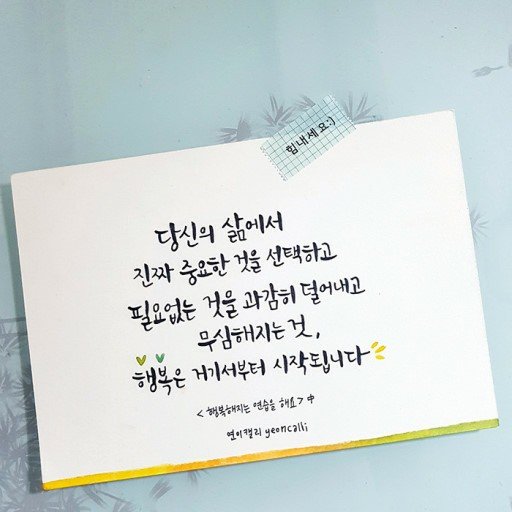 힘내세요:)
당신의 삶에서
진짜 중요한 것을 선택하고
필요없는 것을 과감히 덜어내고
무심해지는 것,
행복은 거기서부터 시작됩니다
<행복해지는 연습을 해요> 中
연이캘리 yeoncalli